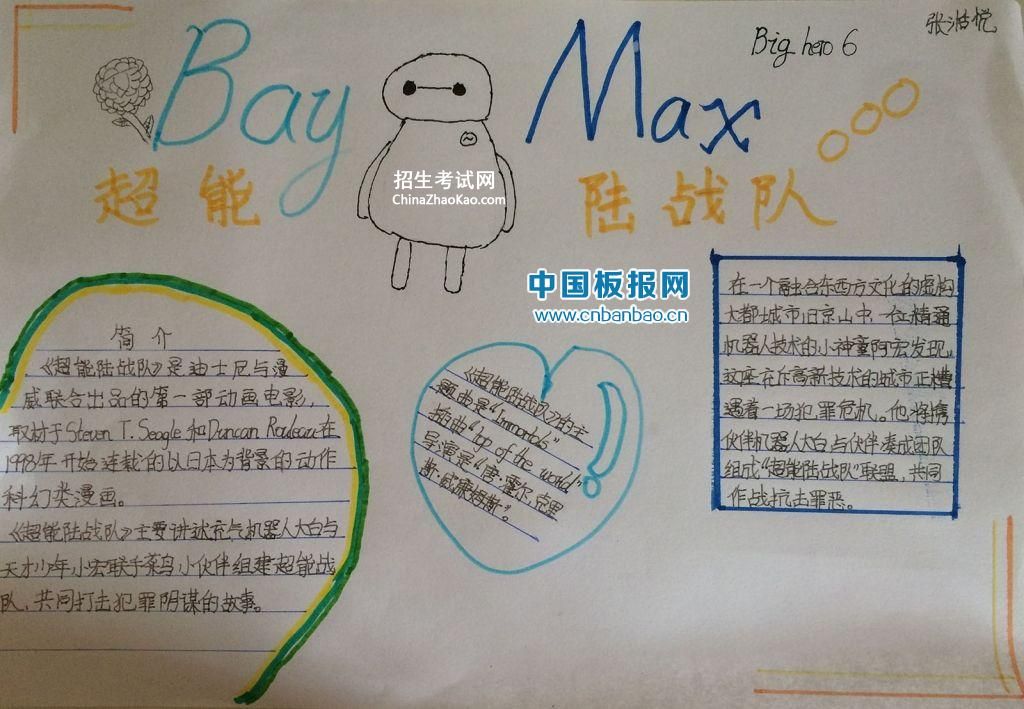 Big hero 6
张湉悦
Bay Max
超能 陆战队
招生考试网
ChinaZhaoKao.com
中国板报网
www.cnbanbao.cn
简介
《超能陆战队》是迪士尼与漫
威联合出品的第一部动画电影,
取材于Steven T. Seagle和Duncan Rouleau在
1998年开始连载的以日本为背景的动作
科幻类漫画。
《超能陆战队》主要讲述充气机器人大白与
天才少年小宏联手菜鸟小伙伴组建超能战
队,共同打击犯罪阴谋的故事。
《超能陆战队》的主
题曲是"Immortals"
插曲"top of the world"
导演是"唐·霍尔,克里
斯·威廉姆斯"。
在一个融合东西方文化的虚构
大都城市旧京山中,一位精通
机器人技术的小神童阿宏发现,
这座充斥高新技术的城市正遭
遇着一场犯罪危机。他将携
伙伴机器人大白与伙伴凑成团队
组成"超能陆战队"联盟,共同
作战抗击罪恶。